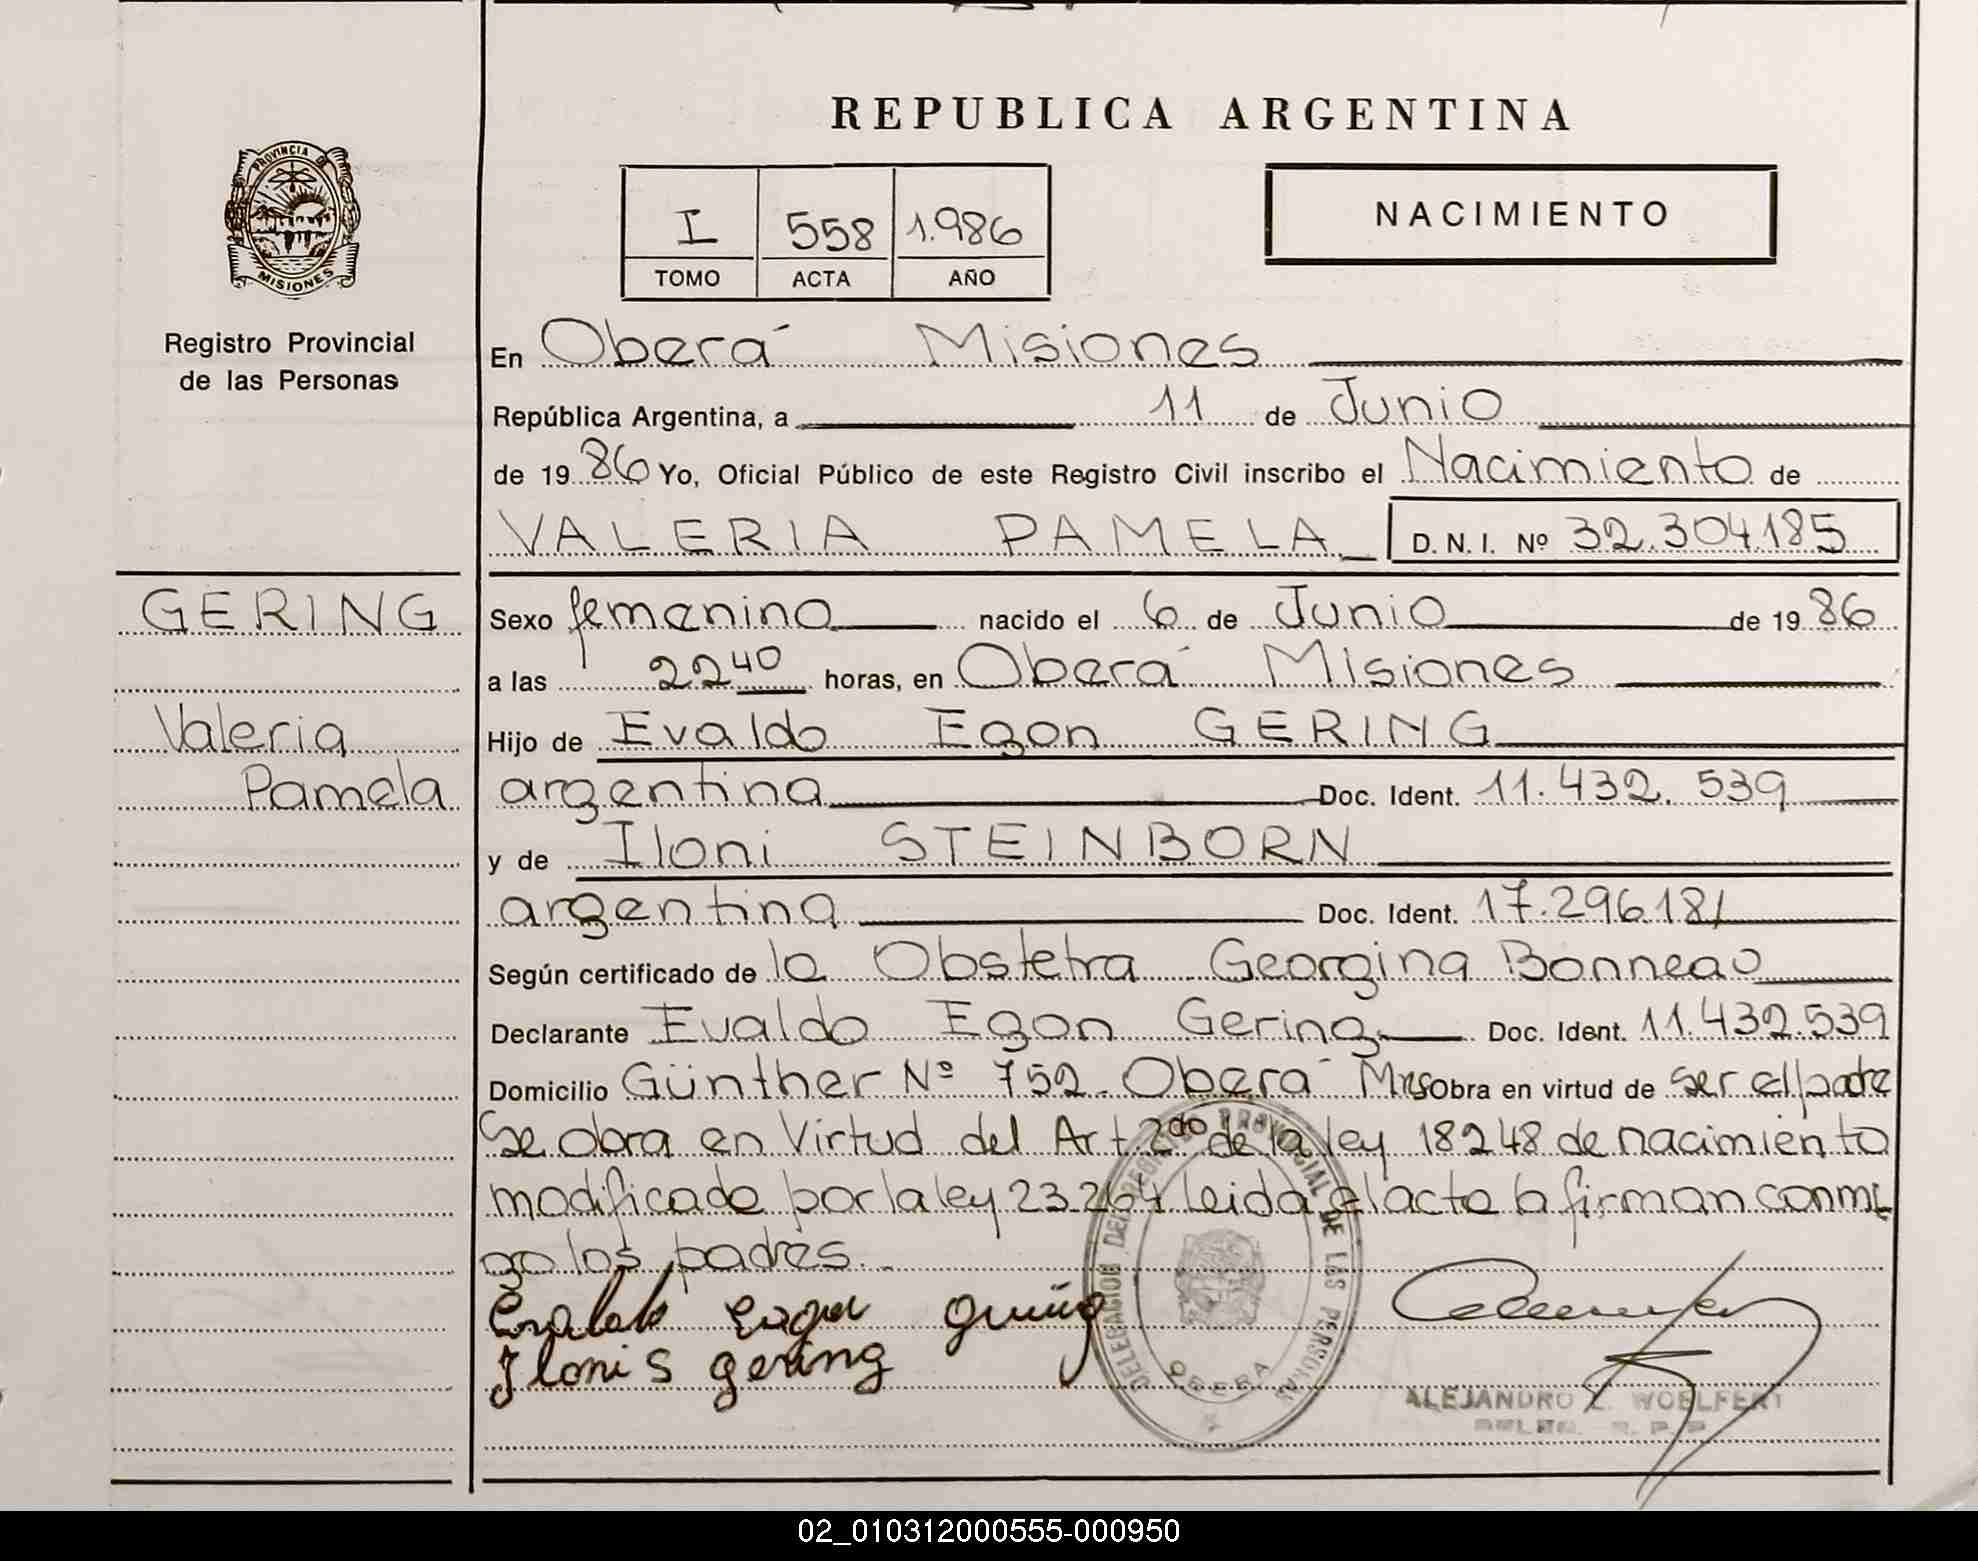 REPUBLICA ARGENTINA
PROVINCIA DE
MISIONES
I 558 1.986
TOMO ACTA AÑO
NACIMIENTO
Registro Provincial
de las Personas
En Oberá Misiones
República Argentina, a 11 de Junio
de 19 86 Yo, Oficial Público de este Registro Civil inscribo el Nacimiento de
VALERIA PAMELA D. N. I. Nº 32.304.185
GERING
Valeria
Pamela
Sexo femenino nacido el 6 de Junio de 19 86
a las 22 40 horas, en Oberá Misiones
Hijo de Evaldo Egon GERING
argentina Doc. Ident. 11.432.539
y de Iloni STEINBORN
argentina Doc. Ident. 17.296181
Según certificado de la Obstetra Georgina Bonneau
Declarante Evaldo Egon Gering Doc. Ident. 11.432.539
Domicilio Günther Nº 752. Oberá Mnes Obra en virtud de ser el padre
Se obra en Virtud del Art 2do de la ley 18248 de nacimiento
modificado por la ley 23.264 leida el acta la firman conmi
go los padres.
Iloni S gering
DELEGACION DEL REGISTRO PROVINCIAL DE LAS PERSONAS
OBERA
ALEJANDRO L. WOELFERT
DELEG. R. P. P.
02_010312000555-000950